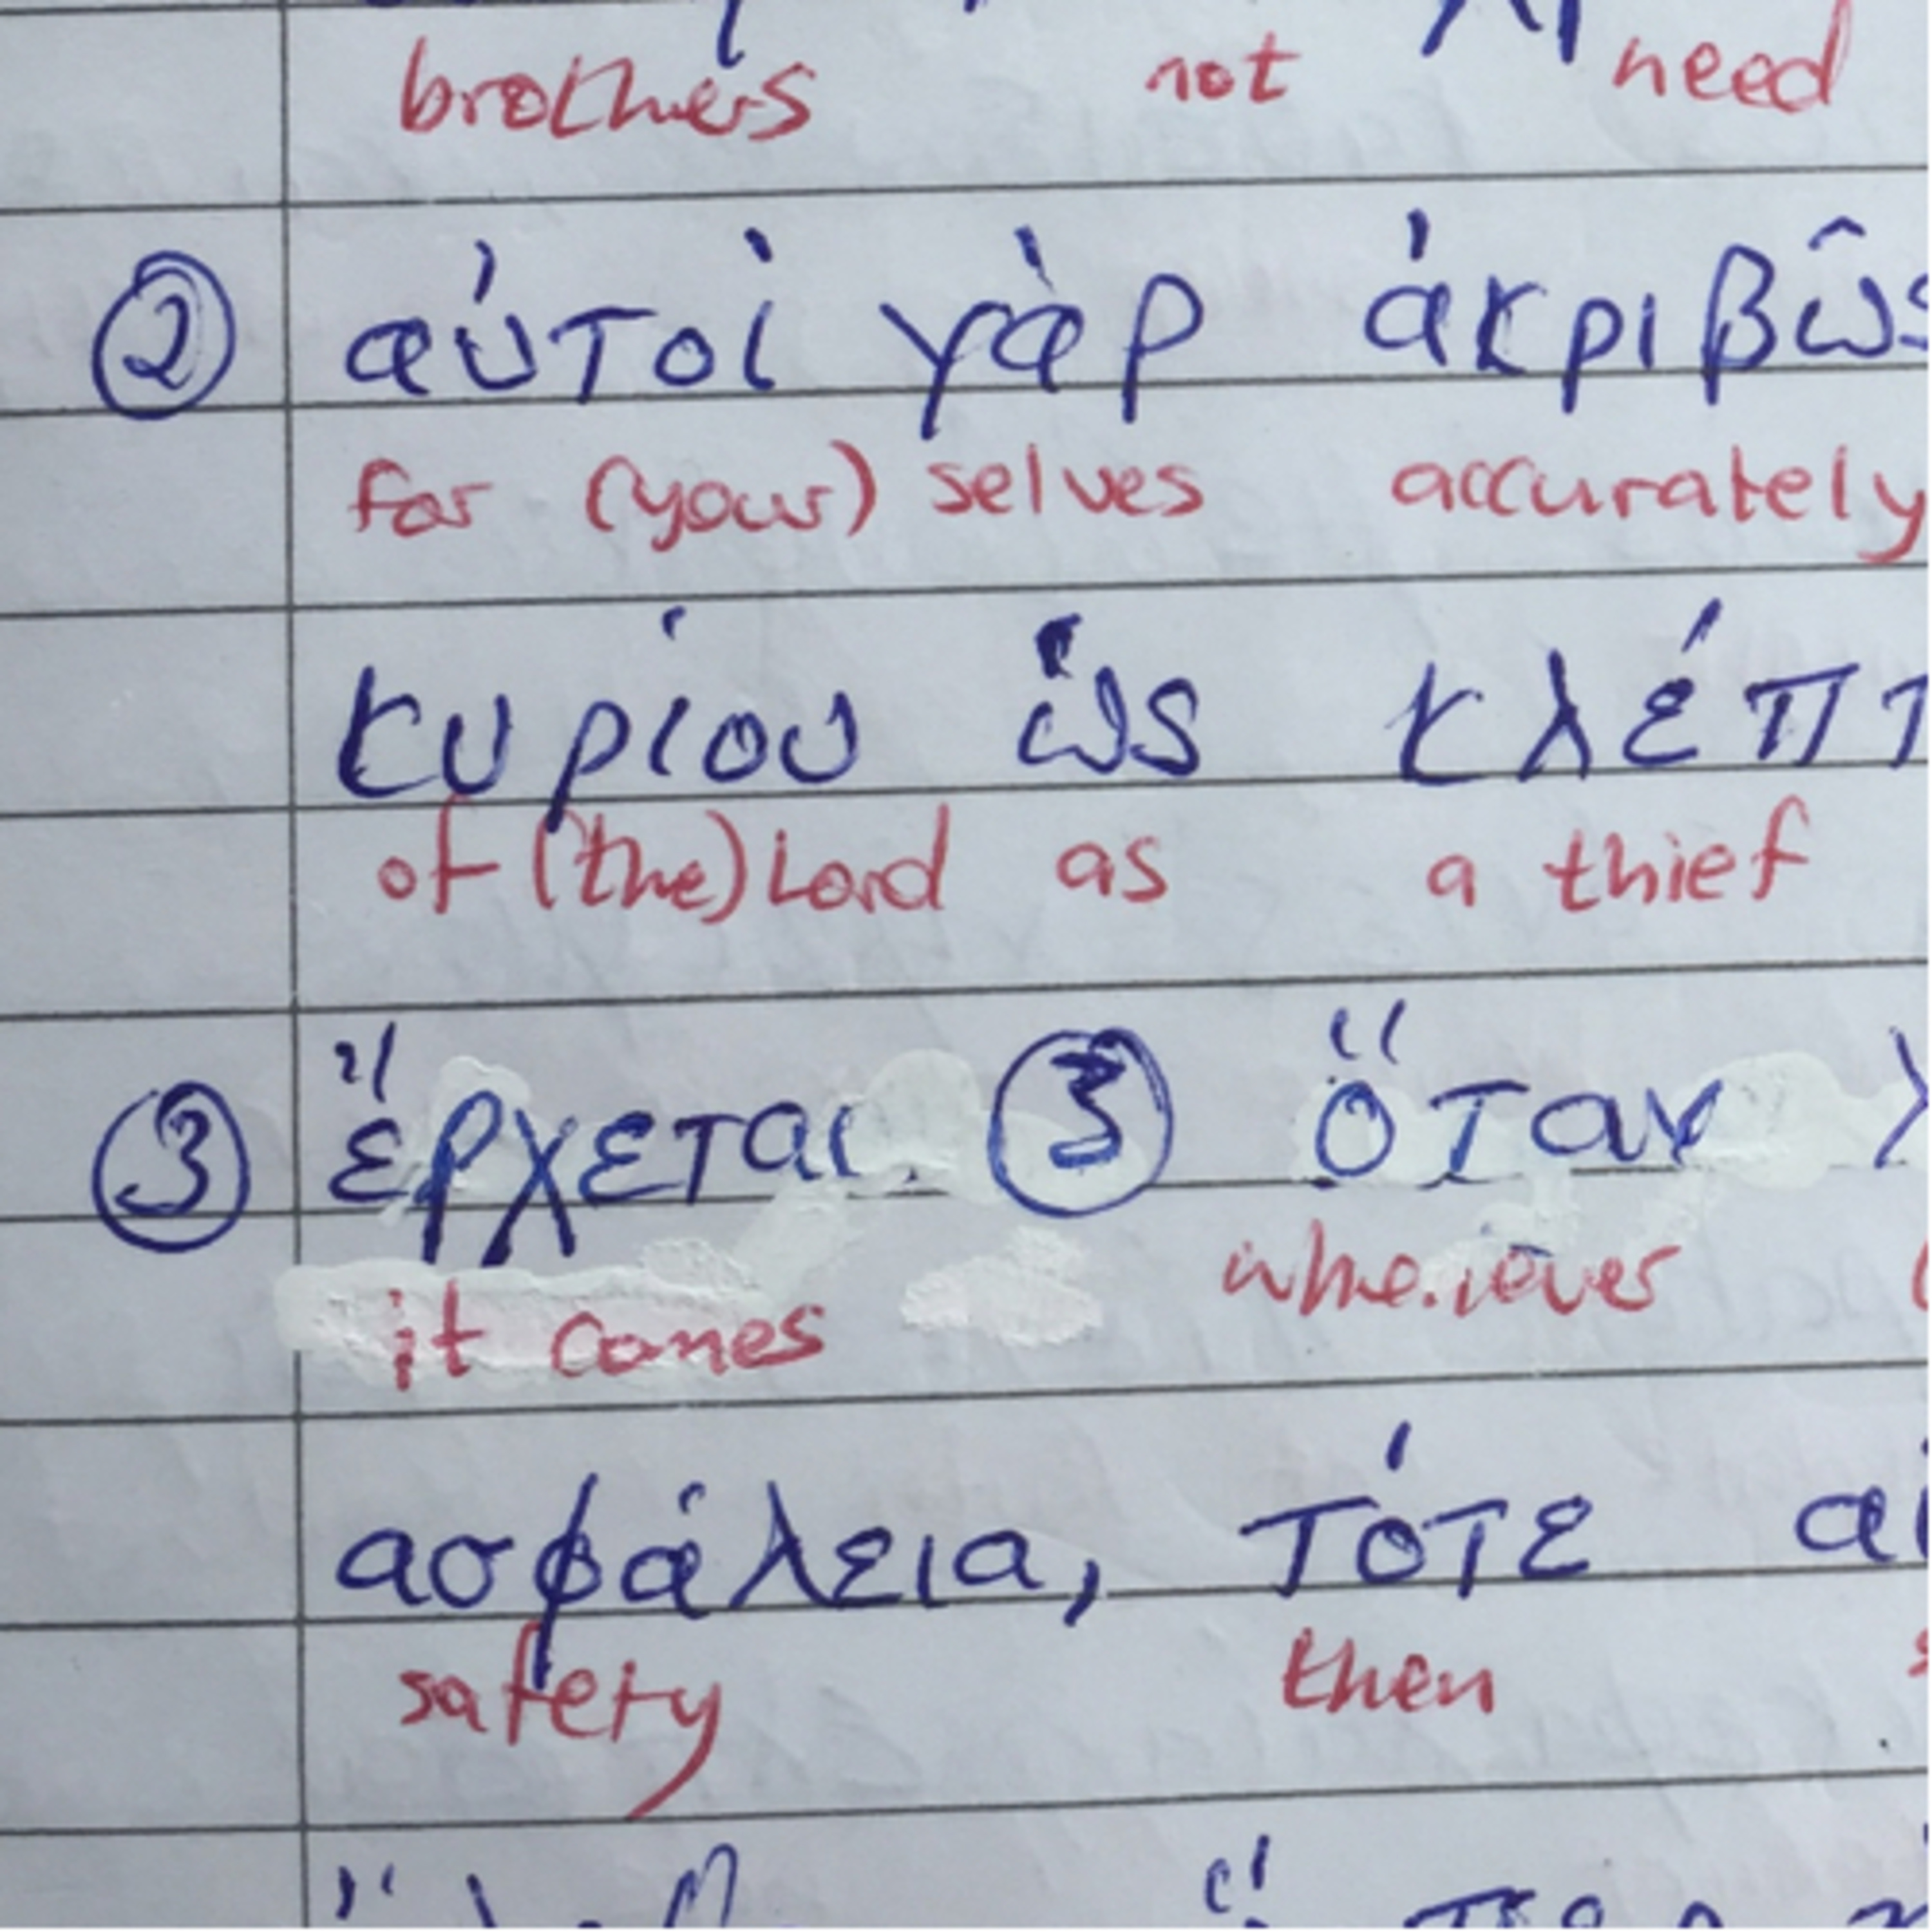 brothers not need
② αὐτοὶ γὰρ ἀκριβῶς
for (your) selves accurately
κυρίου ὡς κλέπτ
of (the) Lord as a thief
③ ἔρχεται. ③ ὅταν λ
it comes whenever
ασφάλεια, τότε αἰ
safety then